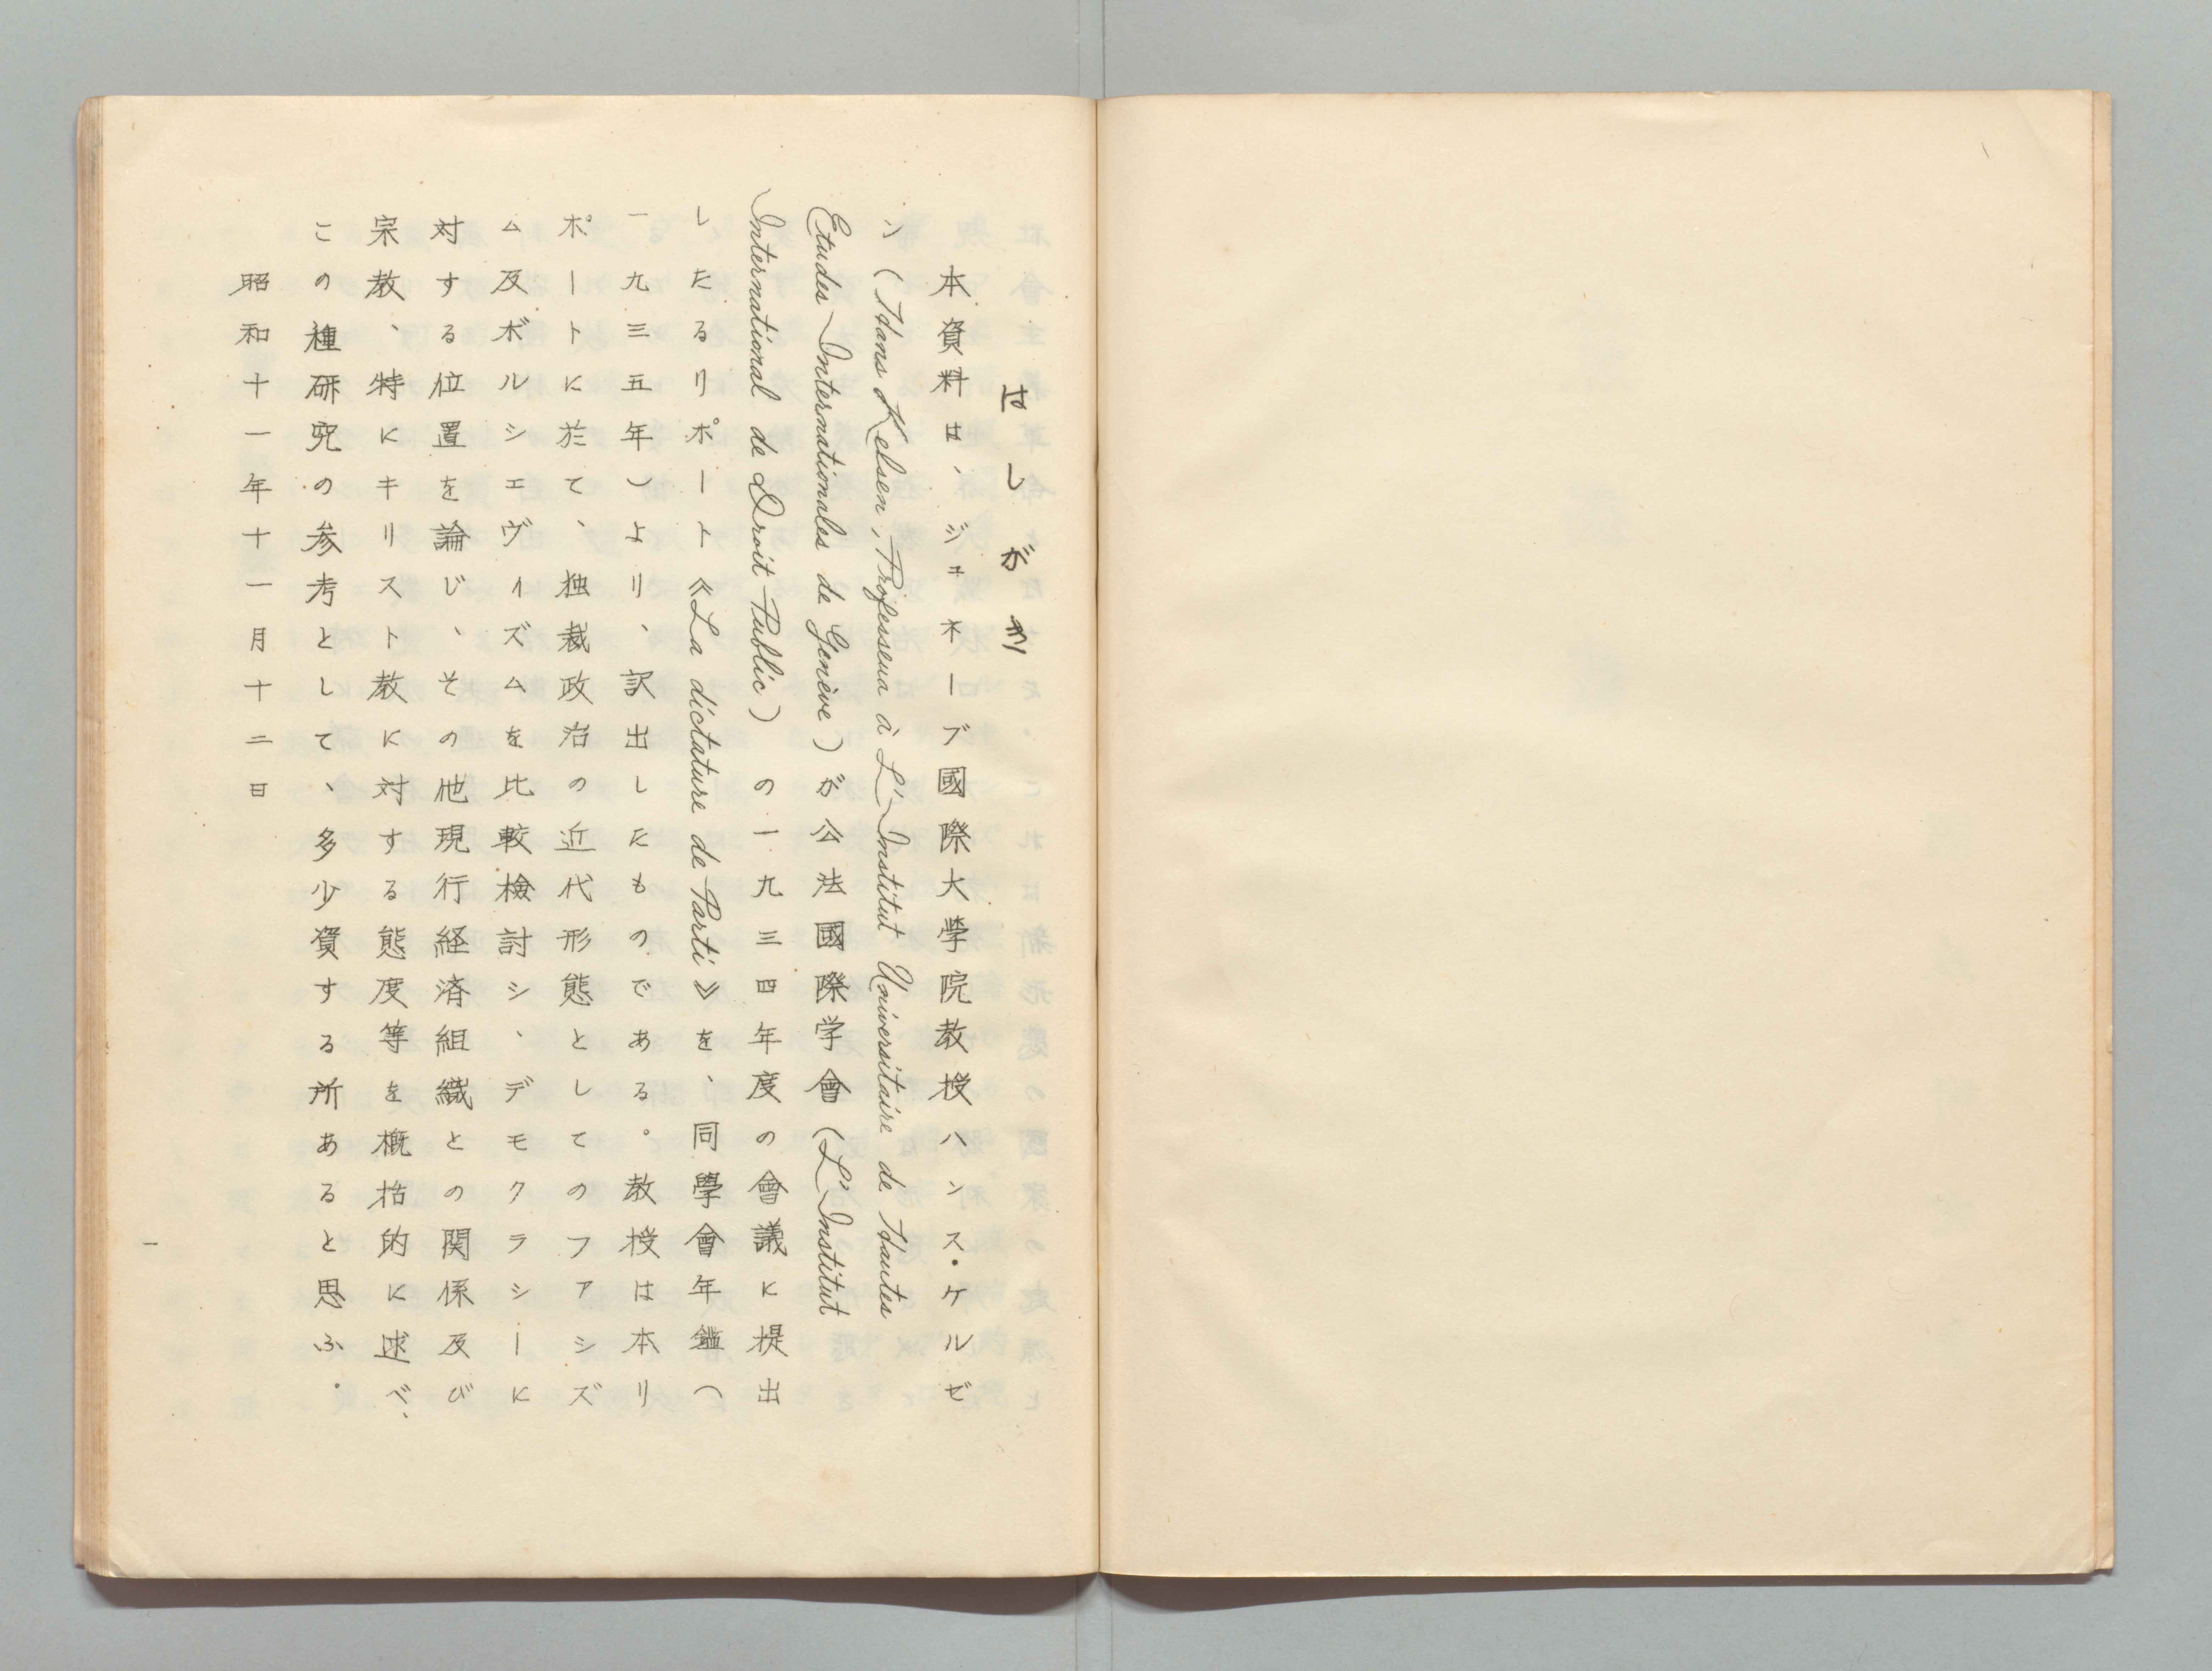 はしがき
本資料は、ジュネーブ國際大学院教授ハンス・ケルゼ
ン(Hans Kelsen, Professeur à L'Institut Universitaire de Hautes
Etudes Internationales de Genève)が公法國際学會(L'Institut
International de Droit Public)の一九三四年度の會議に提出
したるリポート《La dictature de Parti》を、同學會年鑑(
一九三五年)より、訳出したものである。教授は本リ
ポートに於て、独裁政治の近代形態としてのファシズ
ム及ボルシエヴィズムを比較檢討シ、デモクラシーに
対する位置を論じ、その他現行経済組織との関係及び
宗教、特にキリスト教に対する態度等を概括的に述べ、
この種研究の参考として、多少資する所あると思ふ。
昭和十一年十一月十二日
一